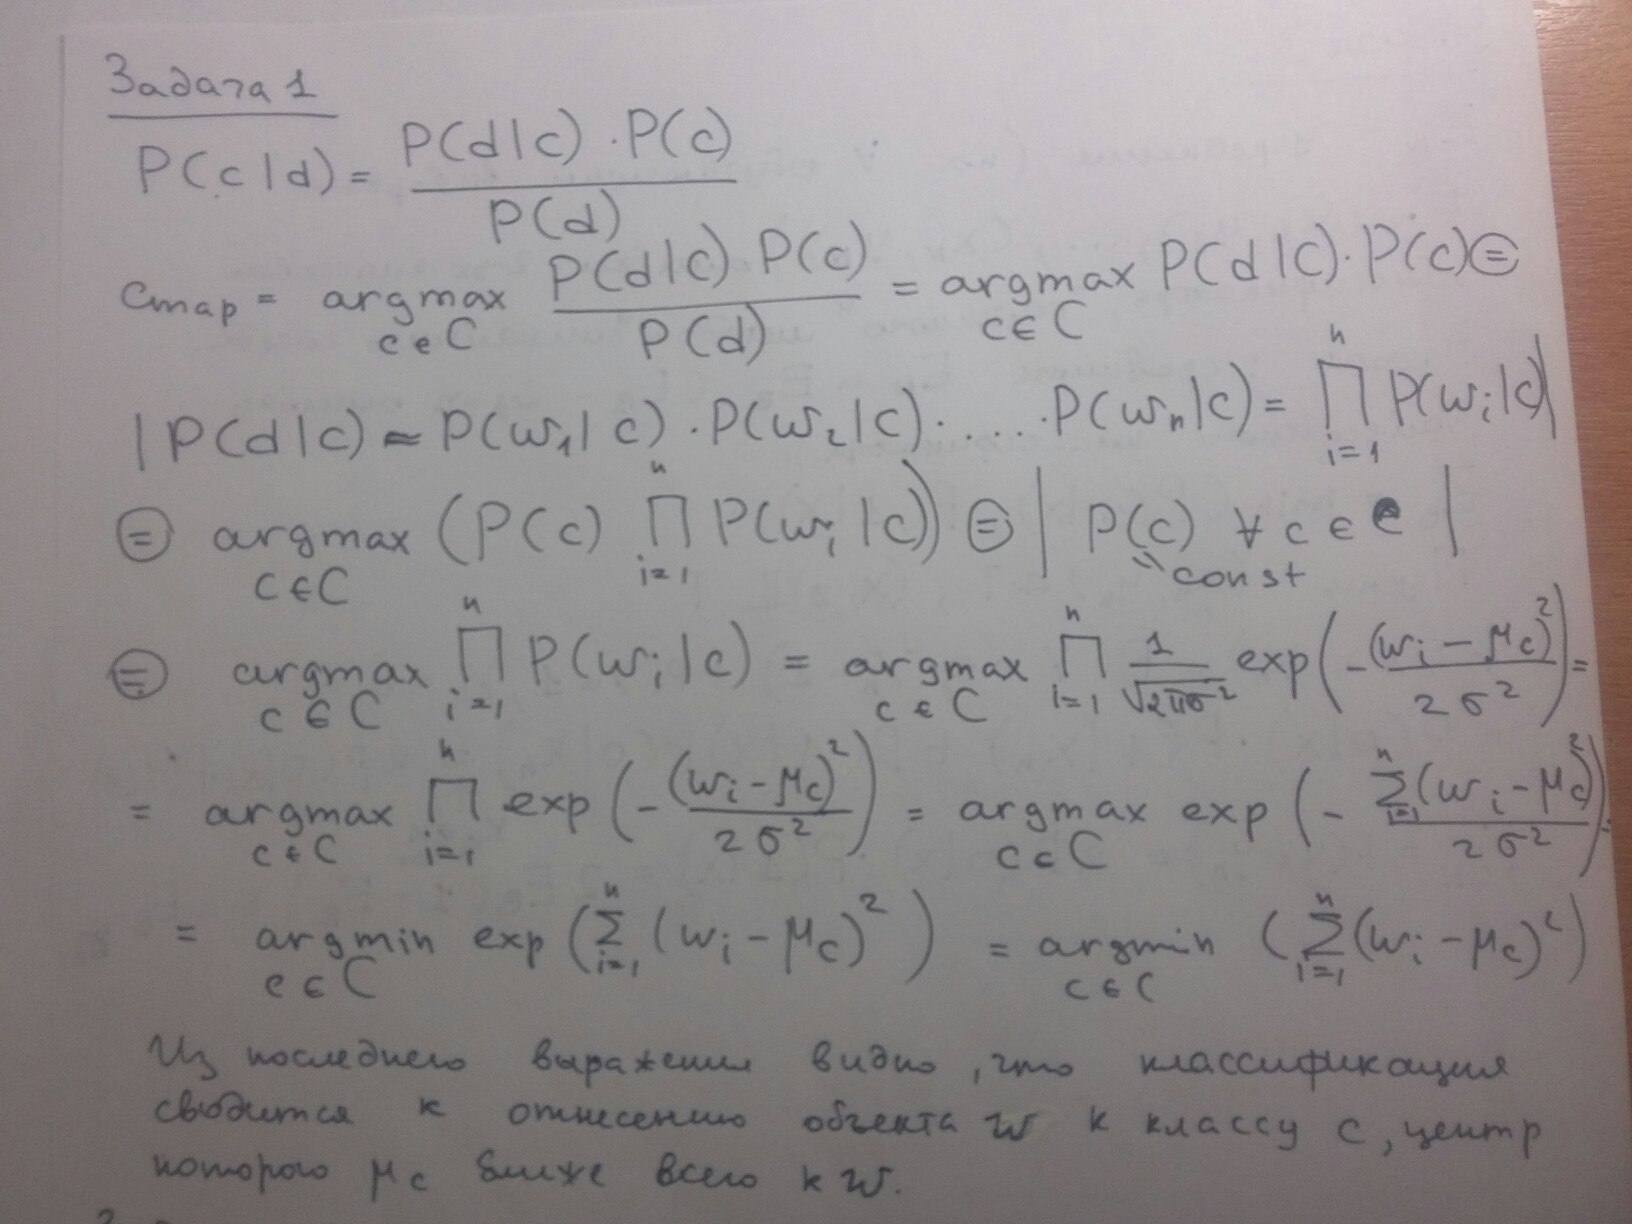 Задача 1
P(c|d) = P(d|c) · P(c) / P(d)
cmap = argmax c∈C P(d|c) P(c) / P(d) = argmax c∈C P(d|c)·P(c) ⊜
| P(d|c) = P(w₁|c)·P(w₂|c)·....·P(wₙ|c) = ∏ i=1 n P(wᵢ|c) |
⊜ argmax c∈C (P(c) ∏ i=1 n P(wᵢ|c)) ⊜ | P(c) = const ∀ c ∈ C |
⊜ argmax c∈C ∏ i=1 n P(wᵢ|c) = argmax c∈C ∏ i=1 n 1/√2πσ² exp(-(wᵢ-μc)²/2σ²) =
= argmax c∈C ∏ i=1 n exp(-(wᵢ-μc)²/2σ²) = argmax c∈C exp(- ∑ i=1 n (wᵢ-μc)²/2σ²) =
= argmin c∈C exp(∑ i=1 n (wᵢ-μc)²) = argmin c∈C (∑ i=1 n (wᵢ-μc)²)
Из последнего выражения видно, что классификация
сводится к отнесению объекта w к классу c, центр
которого μc ближе всего к w.